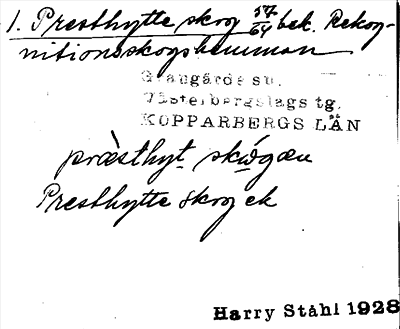 1. Presthytte skog 57/64 bek. Rekog-
nitionsskogshemman
Grangärde sn.
Västerbergslags tg.
KOPPARBERGS LÄN
præsthyt skógæn
Presthytte skog ek
Harry Ståhl 1928